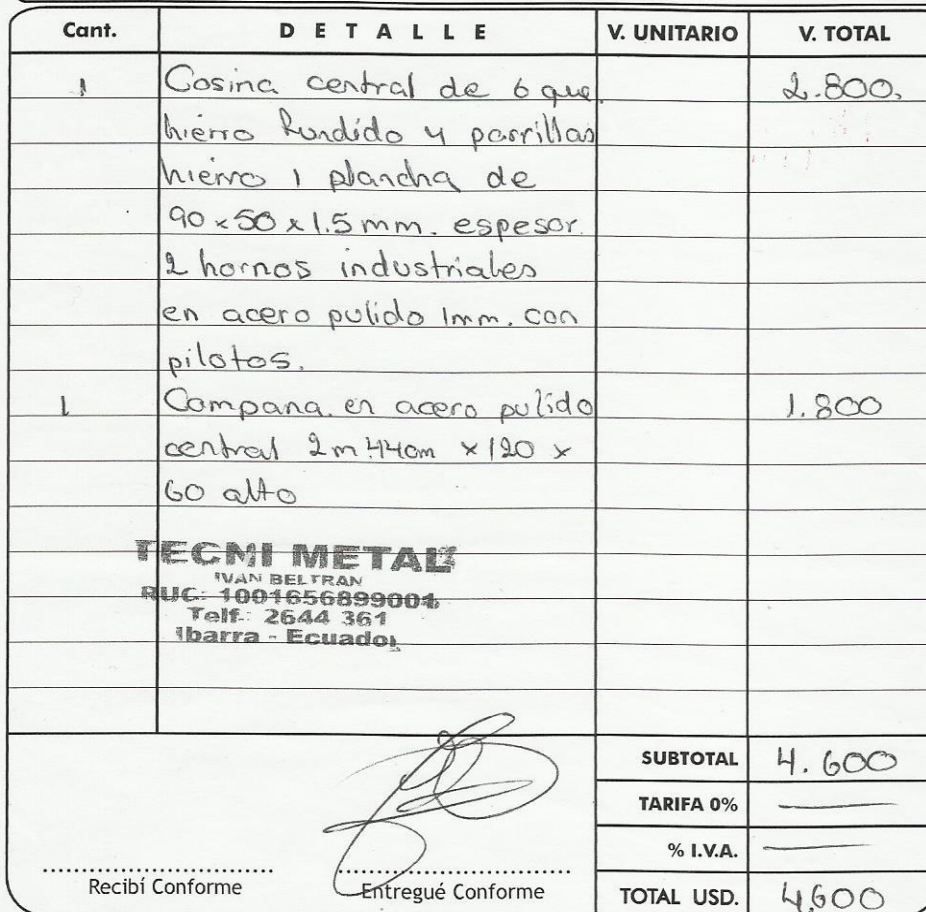 Cant. DETALLE V. UNITARIO V. TOTAL
1 Cosina central de 6 que 2.800.
hierro fundido 4 parrillas
hierro 1 plancha de
90 x 50 x 1.5 mm. espesor.
2 hornos industriales
en acero pulido 1mm. con
pilotos.
1 Campana. en acero pulido 1.800
central 2m 44cm x 120 x
60 alto
TECNI METAL
IVAN BELTRAN
RUC: 1001656899001
Telf.: 2644 361
Ibarra - Ecuador
SUBTOTAL 4.600
TARIFA 0% —
% I.V.A. —
Recibí Conforme Entregué Conforme TOTAL USD. 4,600